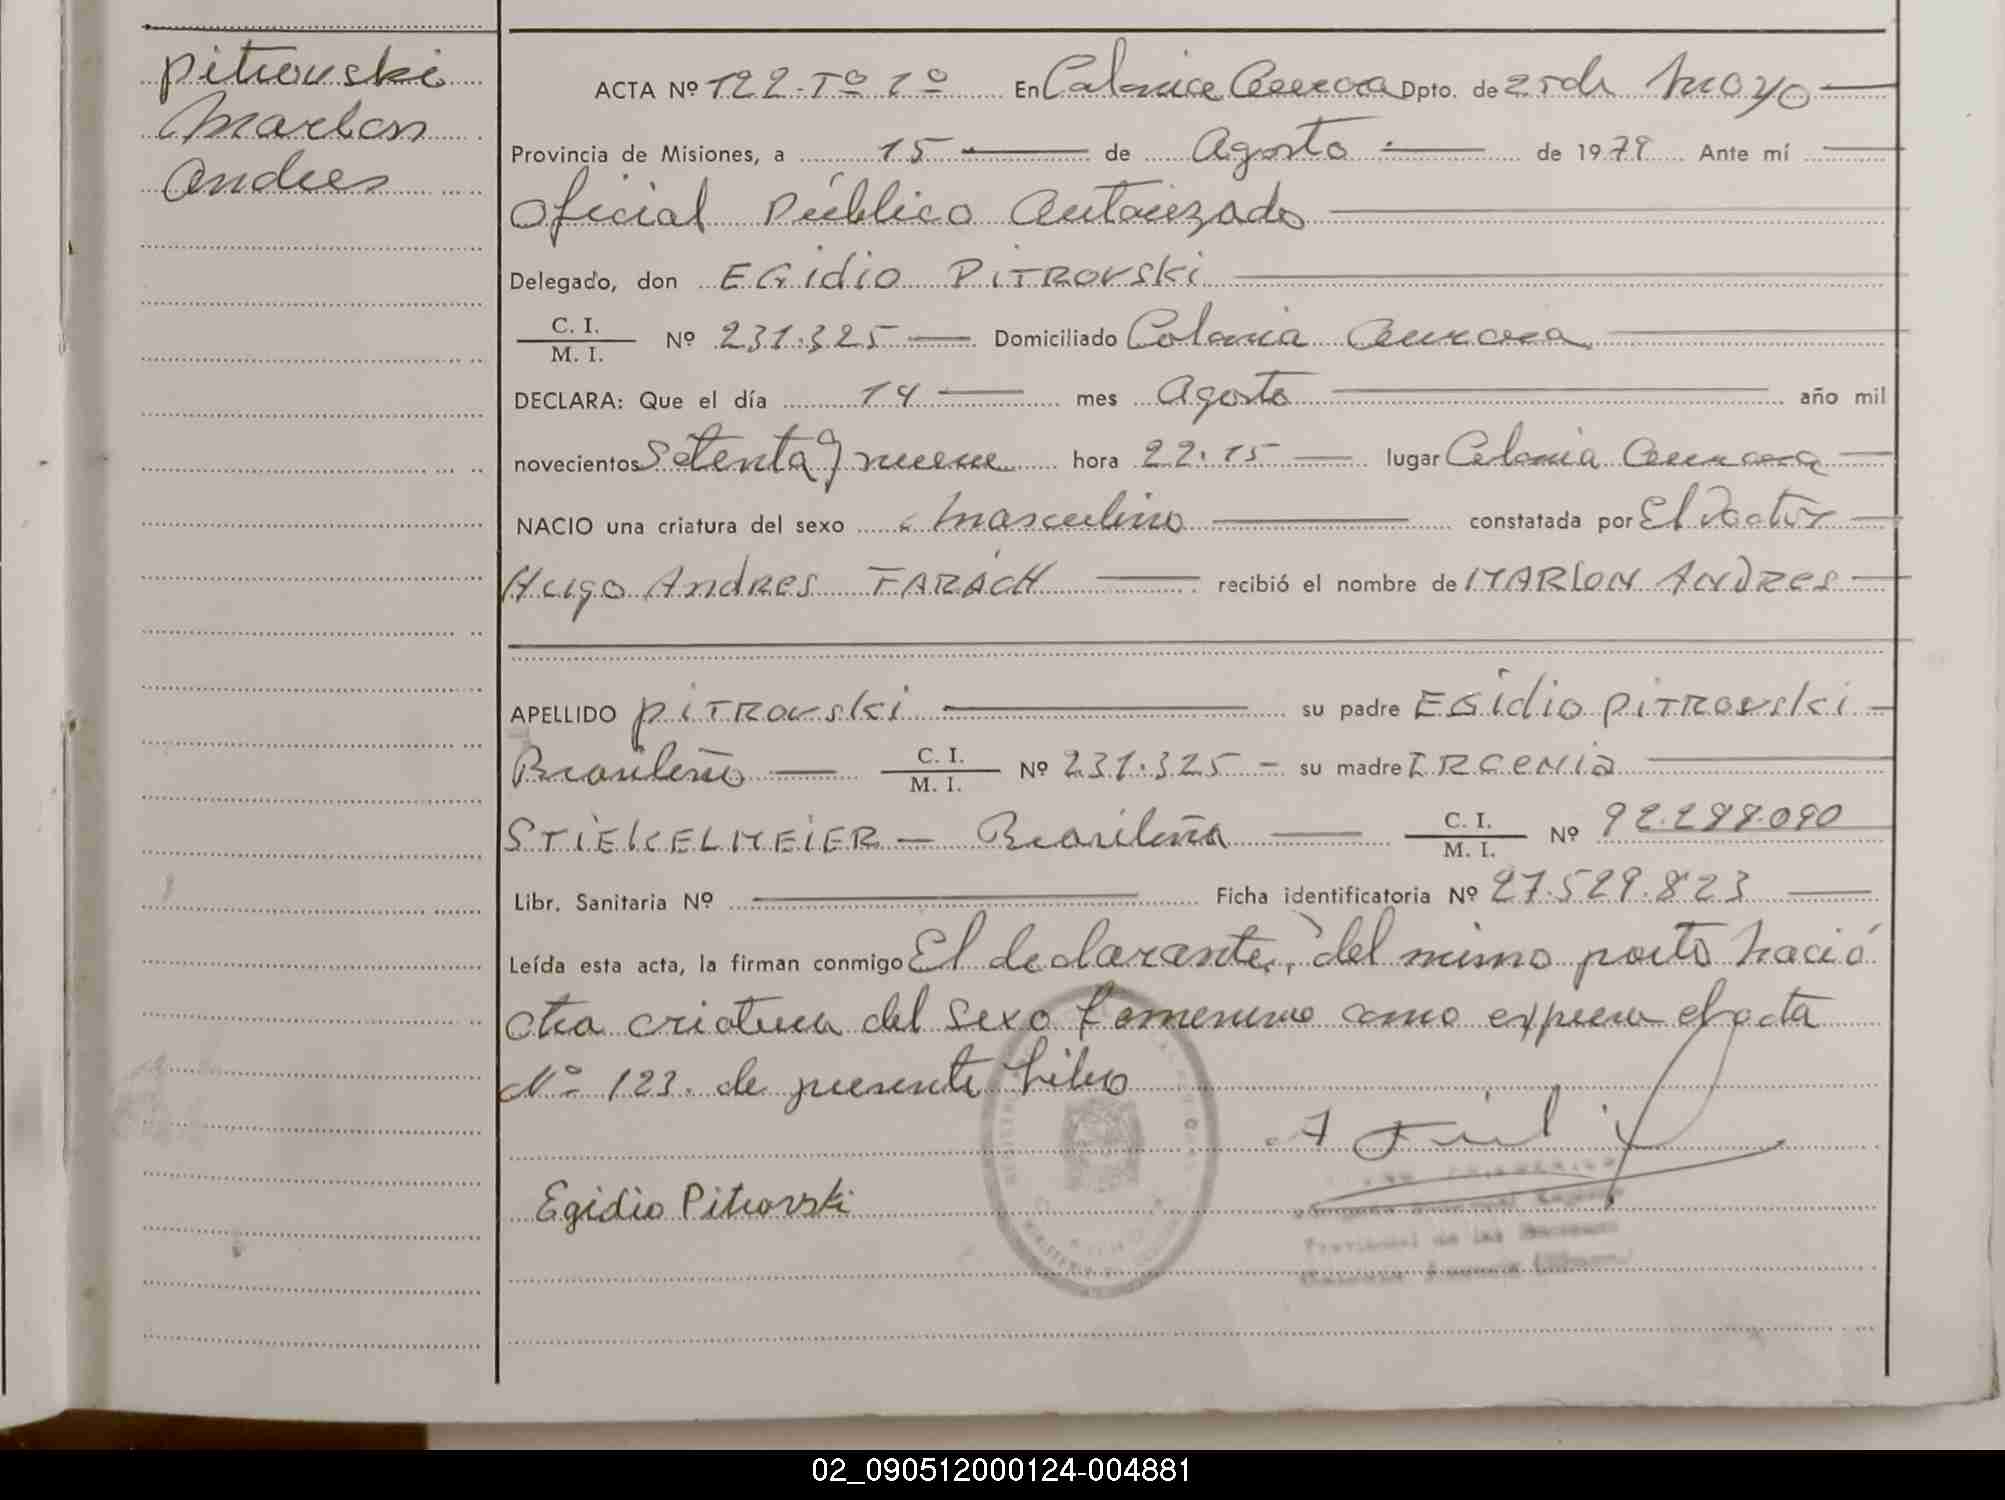 Pitrovski
Marlon
Andres
ACTA Nº 122-Tº 1º En Colonia Aurora Dpto. de 25 de Mayo
Provincia de Misiones, a 15 de Agosto de 1979 Ante mí
Oficial Público Autorizado
Delegado, don EGidio PiTROVSki
C. I.
M. I. Nº 231.325 Domiciliado Colonia Aurora
DECLARA: Que el día 14 mes Agosto año mil
novecientos Setenta y nueve hora 22.15 lugar Colonia Aurora
NACIO una criatura del sexo Masculino constatada por El Doctor
Hugo Andres FARACH recibió el nombre de MARLON ANDRES
APELLIDO PiTROVSki su padre EGidio PiTROVSki
Brasileño C. I.
M. I. Nº 231.325 - su madre IRCENIA
STiEKELMEiER - Brasileña C. I.
M. I. Nº 92.298.090
Libr. Sanitaria Nº Ficha identificatoria Nº 27.529.823
Leída esta acta, la firman conmigo El declarante, del mismo parto nació
otra criatura del sexo femenino como expresa el acta
Nº 123. de presente Libro
Egidio Pitrovski
Provincial de las Personas
Colonia Aurora
02_090512000124-004881